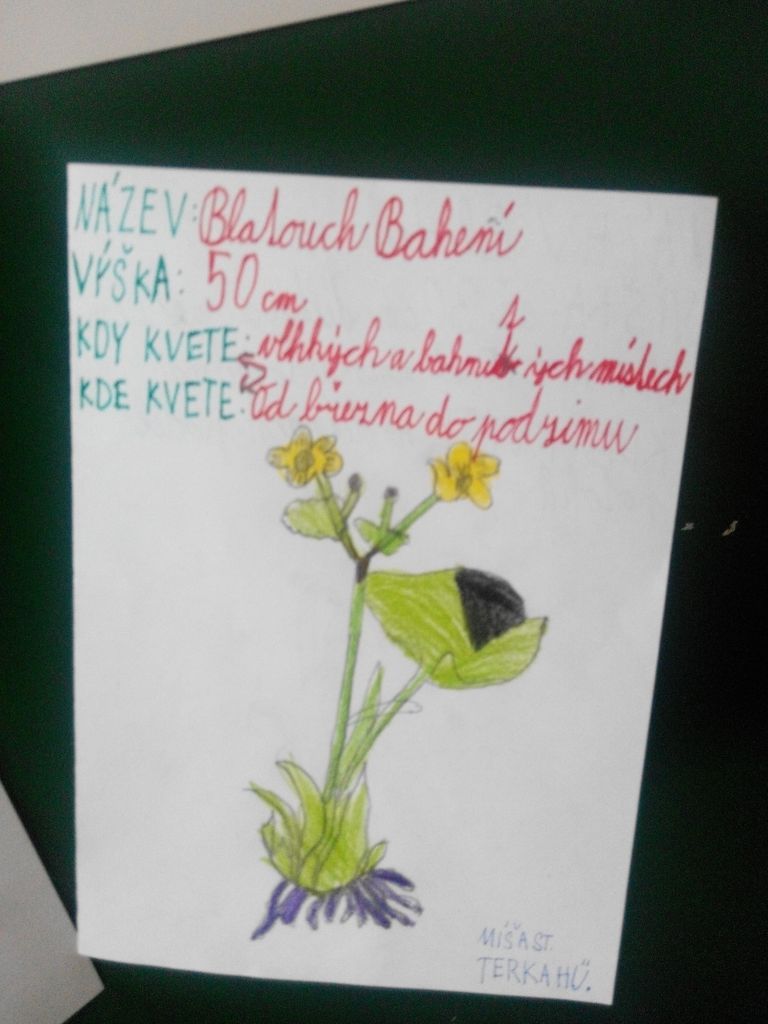 NÁZEV: Blatouch Bahení
VÝŠKA: 50 cm
KDY KVETE: vlhkých a bahnitých místech
KDE KVETE: Od března do podzimu
MÍŠA ST.
TERKA HŮ.